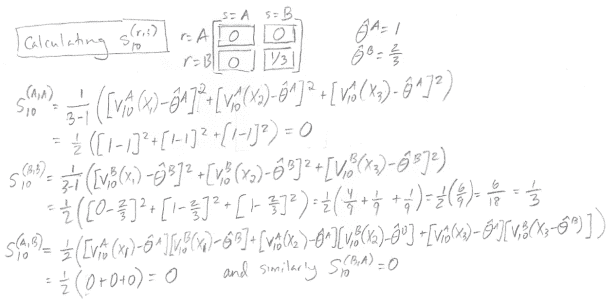 Calculating S₁₀^(r,s)
s=A s=B
r=A 0 0
r=B 0 1/3
θ̂^A = 1
θ̂^B = 2/3
S₁₀^(A,A) = 1/(3-1) ([V₁₀^A(X₁)-θ̂^A]² + [V₁₀^A(X₂)-θ̂^A]² + [V₁₀^A(X₃)-θ̂^A]²)
= 1/2 ([1-1]² + [1-1]² + [1-1]²) = 0
S₁₀^(B,B) = 1/(3-1) ([V₁₀^B(X₁)-θ̂^B]² + [V₁₀^B(X₂)-θ̂^B]² + [V₁₀^B(X₃)-θ̂^B]²)
= 1/2 ([0-2/3]² + [1-2/3]² + [1-2/3]²) = 1/2 (4/9 + 1/9 + 1/9) = 1/2 (6/9) = 6/18 = 1/3
S₁₀^(A,B) = 1/2 ([V₁₀^A(X₁)-θ̂^A][V₁₀^B(X₁)-θ̂^B] + [V₁₀^A(X₂)-θ̂^A][V₁₀^B(X₂)-θ̂^B] + [V₁₀^A(X₃)-θ̂^A][V₁₀^B(X₃-θ̂^B)])
= 1/2 (0+0+0) = 0 and similarly S₁₀^(B,A) = 0